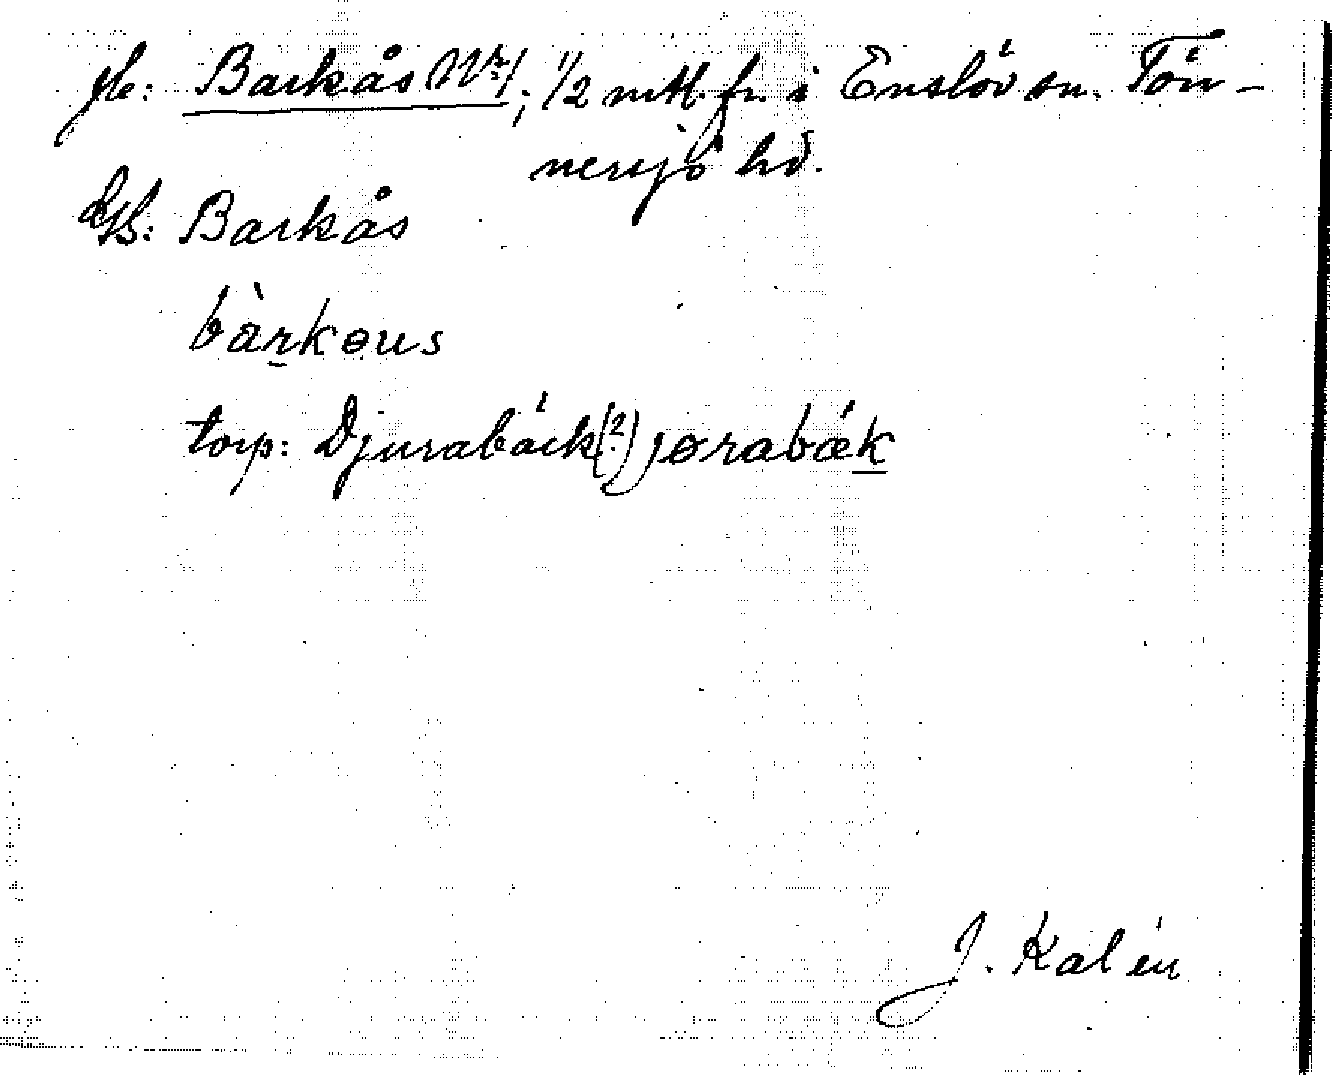 Barkås Nr 1; 1/2 mtl. fr. i Enslöv sn. Tön-
nersjö hd.
Barkås
bàrkɵus
torp: Djurabäck(?) jɵrabǽk
J. Kalén